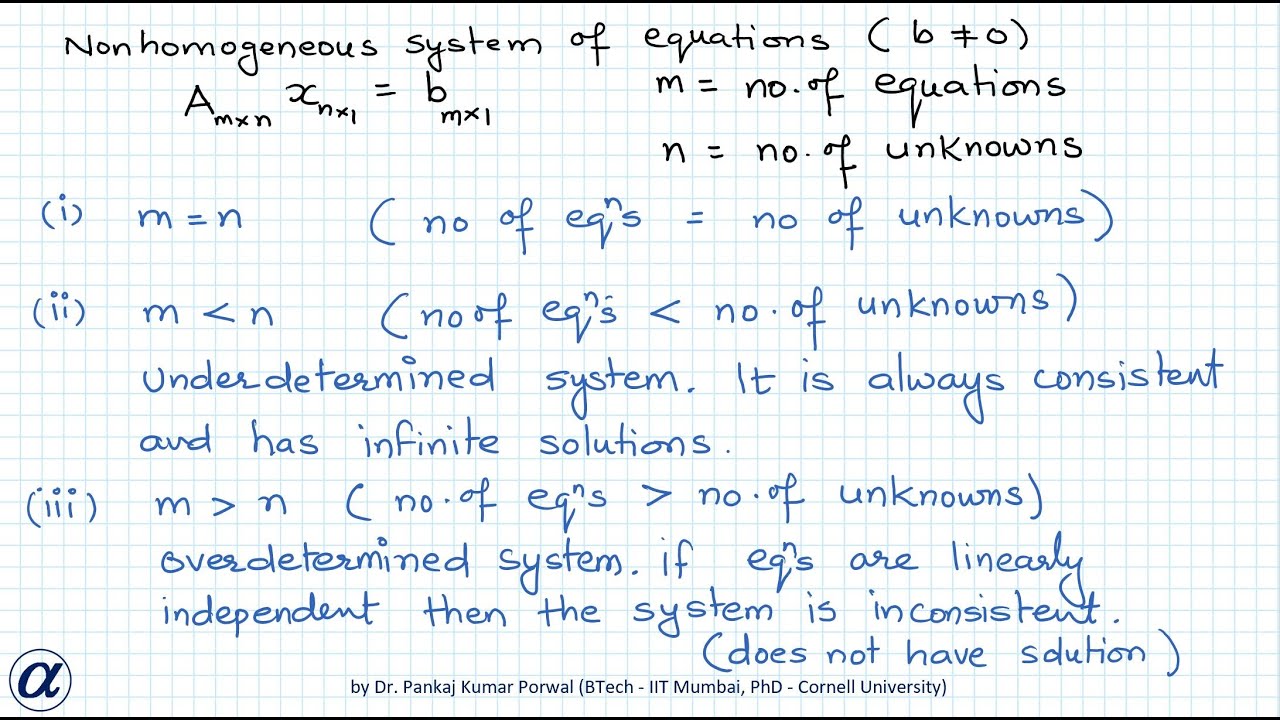 Nonhomogeneous system of equations (b ≠ 0)
A m×n x n×1 = b m×1
m = no. of equations
n = no. of unknowns
(i) m = n (no of eqⁿs = no of unknowns)
(ii) m < n (no of eqⁿs < no. of unknowns)
Underdetermined system. It is always consistent
and has infinite solutions.
(iii) m > n (no. of eqⁿs > no. of unknowns)
overdetermined system. if eqⁿs are linearly
independent then the system is inconsistent.
(does not have solution)
α
by Dr. Pankaj Kumar Porwal (BTech - IIT Mumbai, PhD - Cornell University)